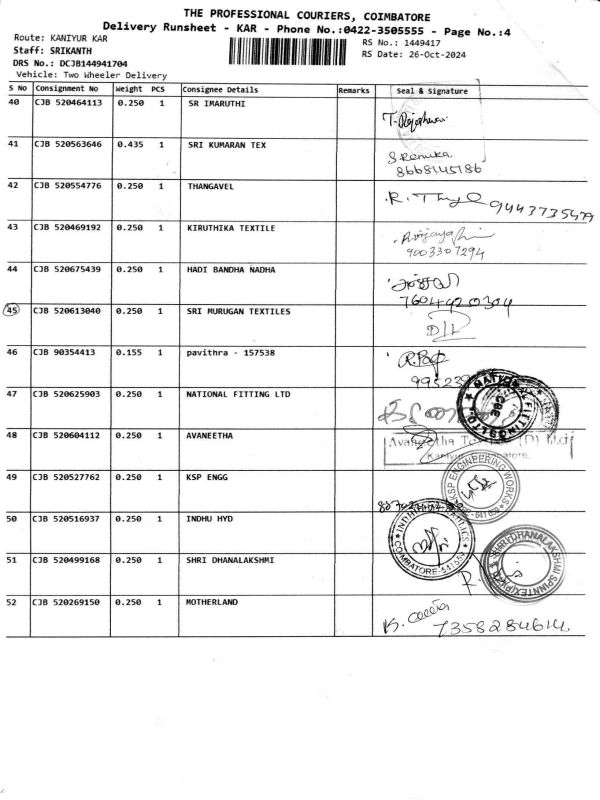 THE PROFESSIONAL COURIERS, COIMBATORE
Delivery Runsheet - KAR - Phone No.:0422-3505555 - Page No.:4
Route: KANIYUR KAR
RS No.: 1449417
Staff: SRIKANTH
RS Date: 26-Oct-2024
DRS No.: DCJB144941704
Vehicle: Two Wheeler Delivery
S No Consignment No Weight PCS Consignee Details Remarks Seal & Signature
40 CJB 520464113 0.250 1 SR IMARUTHI
41 CJB 520563646 0.435 1 SRI KUMARAN TEX
S. Renuka
8668145186
42 CJB 520554776 0.250 1 THANGAVEL
43 CJB 520469192 0.250 1 KIRUTHIKA TEXTILE
9003307294
44 CJB 520675439 0.250 1 HADI BANDHA NADHA
7604420304
45 CJB 520613040 0.250 1 SRI MURUGAN TEXTILES
46 CJB 90354413 0.155 1 pavithra - 157538
47 CJB 520625903 0.250 1 NATIONAL FITTING LTD
NATIONAL FITTINGS LTD. CBE
48 CJB 520604112 0.250 1 AVANEETHA
Avaneetha
49 CJB 520527762 0.250 1 KSP ENGG
KSP ENGINEERING WORKS
50 CJB 520516937 0.250 1 INDHU HYD
COIMBATORE-641 659
51 CJB 520499168 0.250 1 SHRI DHANALAKSHMI
SHRI DHANALAKSHMI SPINNTEX (P) LTD
52 CJB 520269150 0.250 1 MOTHERLAND
7358284614